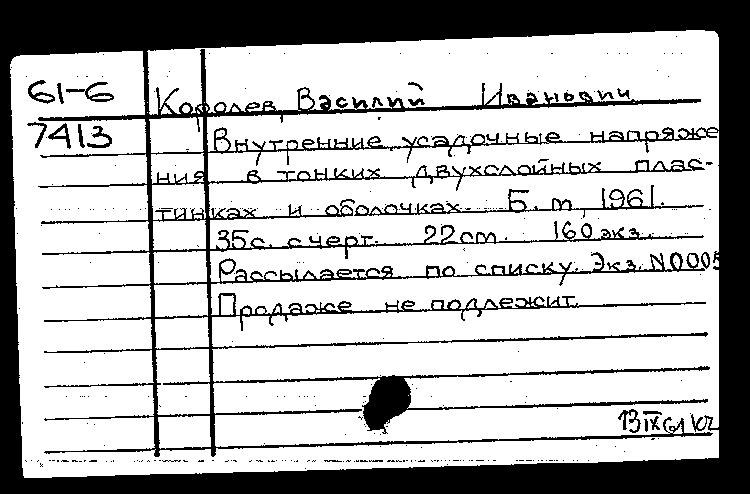 61-6 Королев, Василий Иванович
7413 Внутренние усадочные напряже
ния в тонких двухслойных плас-
тинках и оболочках. Б. м, 1961.
35с. с черт. 22см. 160 экз.
Рассылается по списку. Экз. N0005
Продаже не подлежит.
13 IX 61